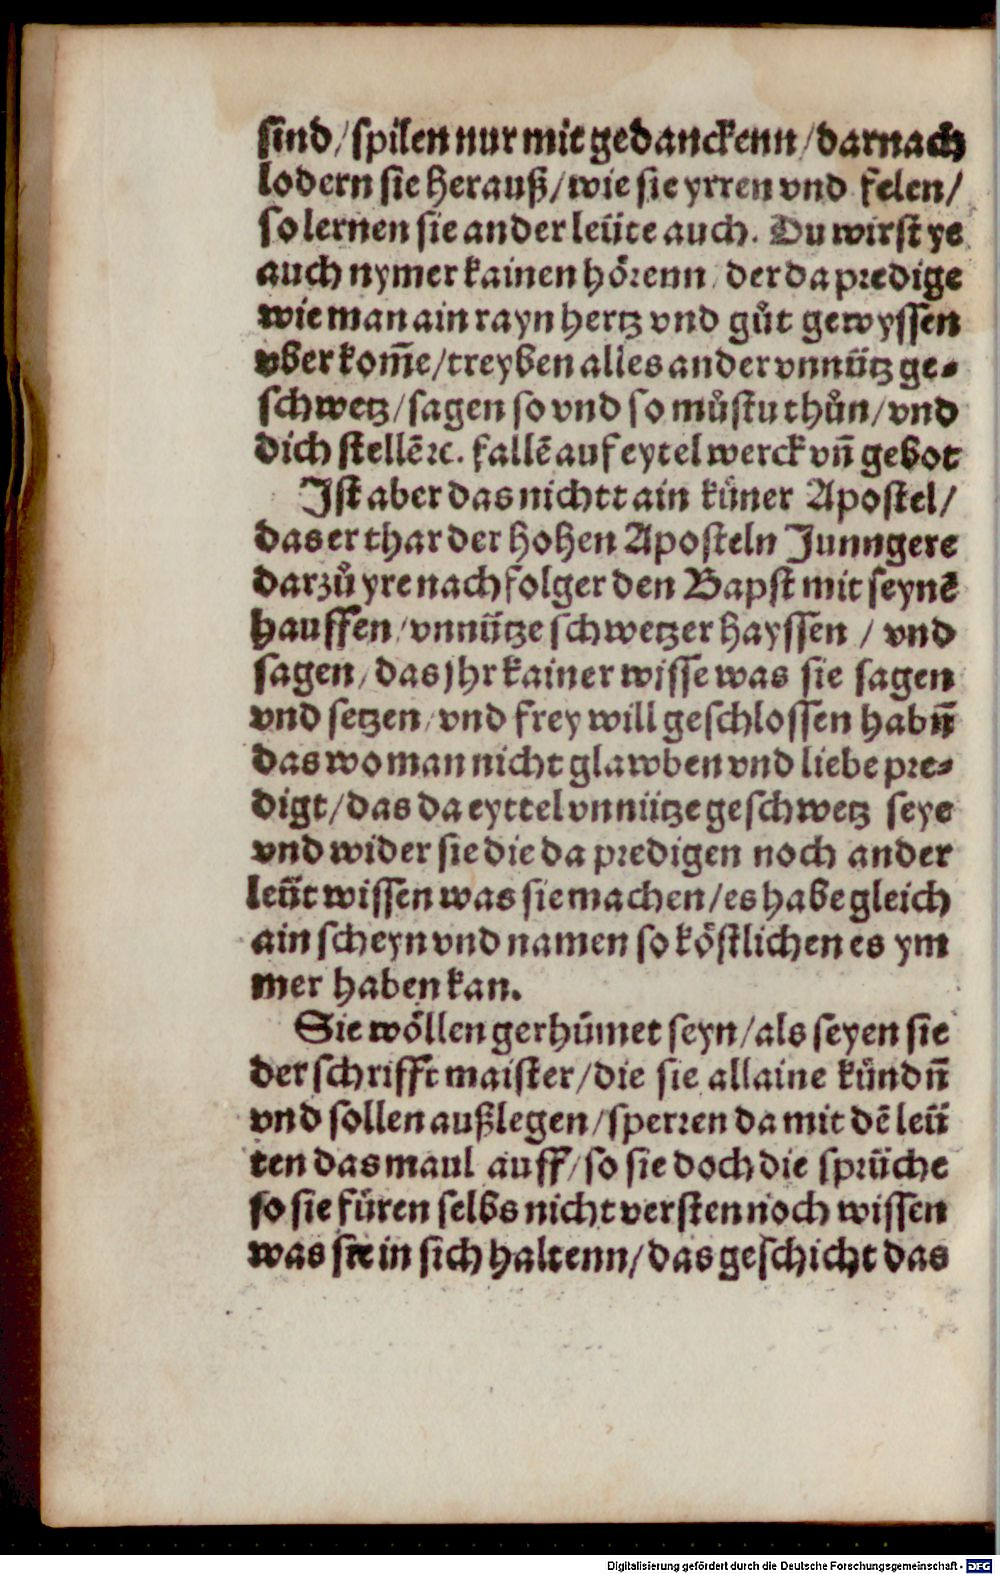 sind/spilen nur mit gedanckenn/darnach
lodern sie herauß/wie sie yrren vnd felen/
so lernen sie ander leüte auch. Du wirst ye
auch nymer kainen hörenn/der da predige
wie man ain rayn hertz vnd gůt gewyssen
vber kom̃e/treyben alles ander vnnütz ge⸗
schwetz/sagen so vnd so můstu thůn/vnd
dich stellẽ ꝛc. fallẽ auf eytel werck vñ gebot
Jst aber das nichtt ain küner Apostel/
das er thar der hohen Aposteln Junngere
darzů yre nachfolger den Bapst mit seynẽ
hauffen/vnnütze schwetzer hayssen / vnd
sagen/das jhr kainer wisse was sie sagen
vnd setzen/vnd frey will geschlossen habñ
das wo man nicht glawben vnd liebe pre⸗
digt/das da eyttel vnnütze geschwetz seye
vnd wider sie die da predigen noch ander
leüt wissen was sie machen/es habe gleich
ain scheyn vnd namen so köstlichen es ym
mer haben kan.
Sie wöllen gerhümet seyn/als seyen sie
der schrifft maister/die sie allaine kündñ
vnd sollen außlegen/sperren da mit dẽ leü
ten das maul auff/so sie doch die sprüche
so sie füren selbs nicht versten noch wissen
was sie in sich haltenn/das geschicht das
Digitalisierung gefördert durch die Deutsche Forschungsgemeinschaft - DFG